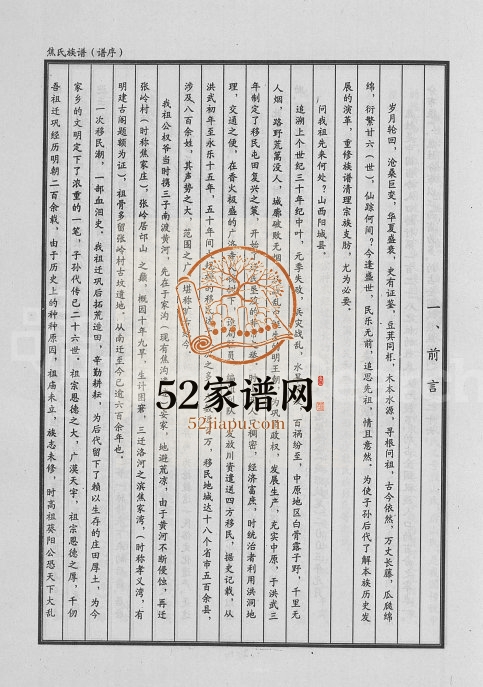 焦氏族谱（谱序）
一、前言
岁月轮回，沧桑巨变，华夏盛衰，史有证鉴，豆萁同根，木本水源，寻根问祖，古今依然，万丈长藤，瓜瓞绵
绵，衍繁廿六（世），仙踪何间？今逢盛世，民乐无前，追思先祖，情且意然，为使子孙后代了解本族历史发
展的演革，重修族谱清理宗族支脉，尤为必要。
问我祖先来何处？山西阳城县，
追溯上个世纪三十年纪中叶，元季失政，兵灾战乱，水旱 百祸纷至，中原地区白骨露于野，千里无
人烟，路野荒蒿没人，城廓破败无烟 乱中 生的明王朝 为巩 政权，发展生产，充实中原，于洪武三
年制定了移民屯田复兴之策，开始了 稠密，经济富庶，时统治者利用洪洞地
理，交通之便，在香火极盛的广济寺 下 发放川资遣送四方移民，据史记载，从
洪武初年至永乐十五年，五十年间 的移 之多 万，移民地域达十八个省市五百余县，
涉及八百余姓，其声势之大，范围之广 堪称旷 今
我祖公权爷当时携三子南渡黄河，先在于家沟（现有焦沟 安家，地避荒凉，由于黄河不断侵蚀，再迁
张岭村（时称焦家庄），张岭居邙山 之巅，概因十年九旱，生计困窘，三迁洛河之滨焦家湾，（时称孝义湾，有
明建古阁题额为证），祖骨多留张岭村古坟遗地，从南迁至今已逾六百余年也。
一次移民潮，一部血泪史。我祖迁巩后拓荒造田，辛勤耕耘，为后代留下了赖以生存的庄田厚土，为今
家乡的文明定下了浓重的一笔，子孙代传已二十六世，祖宗恩德之大，广漠天宇，祖宗恩德之厚，千仞
吾祖迁巩经历明朝二百余载，由于历史上的种种原因，祖庙未立，族志未修，时高祖葵阳公恐天下大乱
52家谱网
52jiapu.com